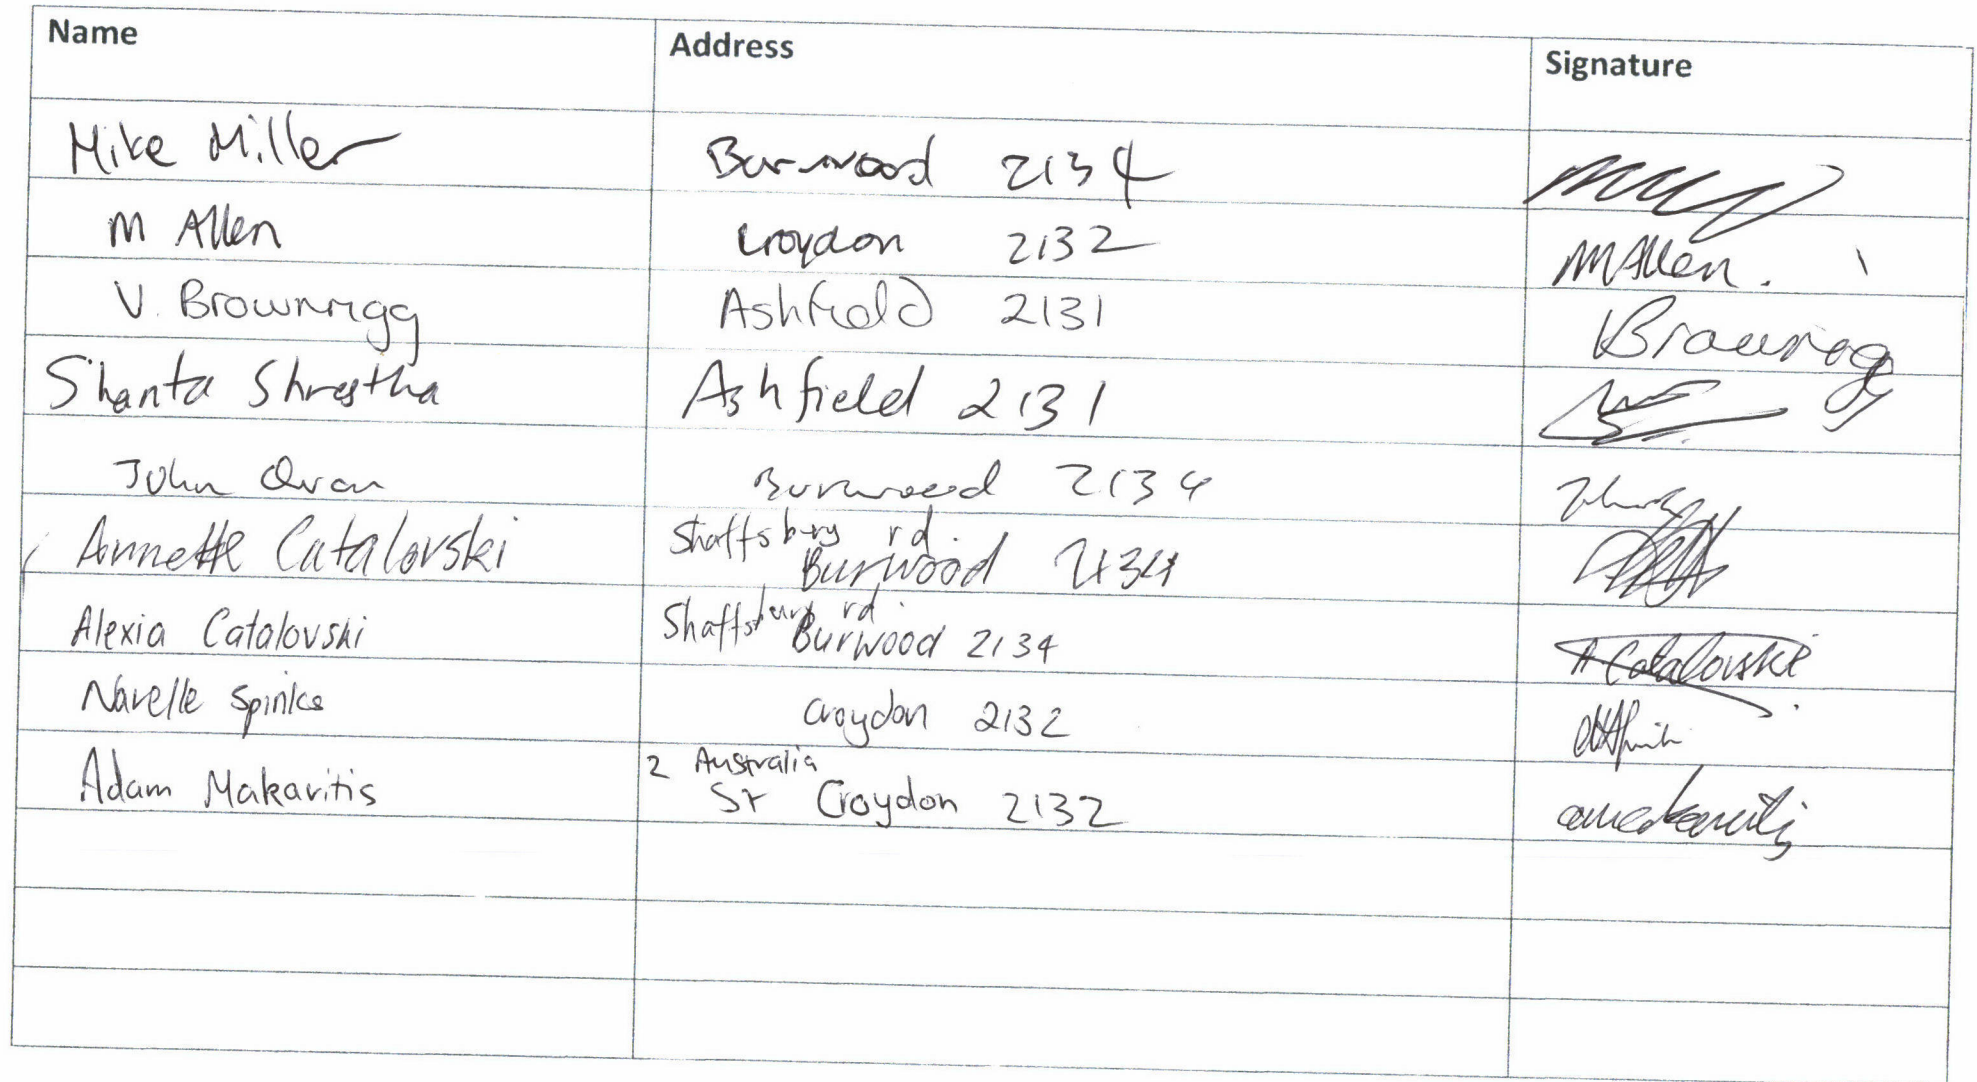 Name Address Signature
Mike Miller Burwood 2134
M Allen Croydon 2132 MAllen.
V. Brownrigg Ashfield 2131 Brownrigg
Shanta Shrestha Ashfield 2131
John Qvan Burwood 2134
Annette Catalovski Shaftsbury rd.
Burwood 2134
Alexia Catalovski Shaftsbury rd.
Burwood 2134 A Catalovski
Narelle Spinks Croydon 2132
Adam Makaritis 2 Australia
St Croydon 2132 amakaritis